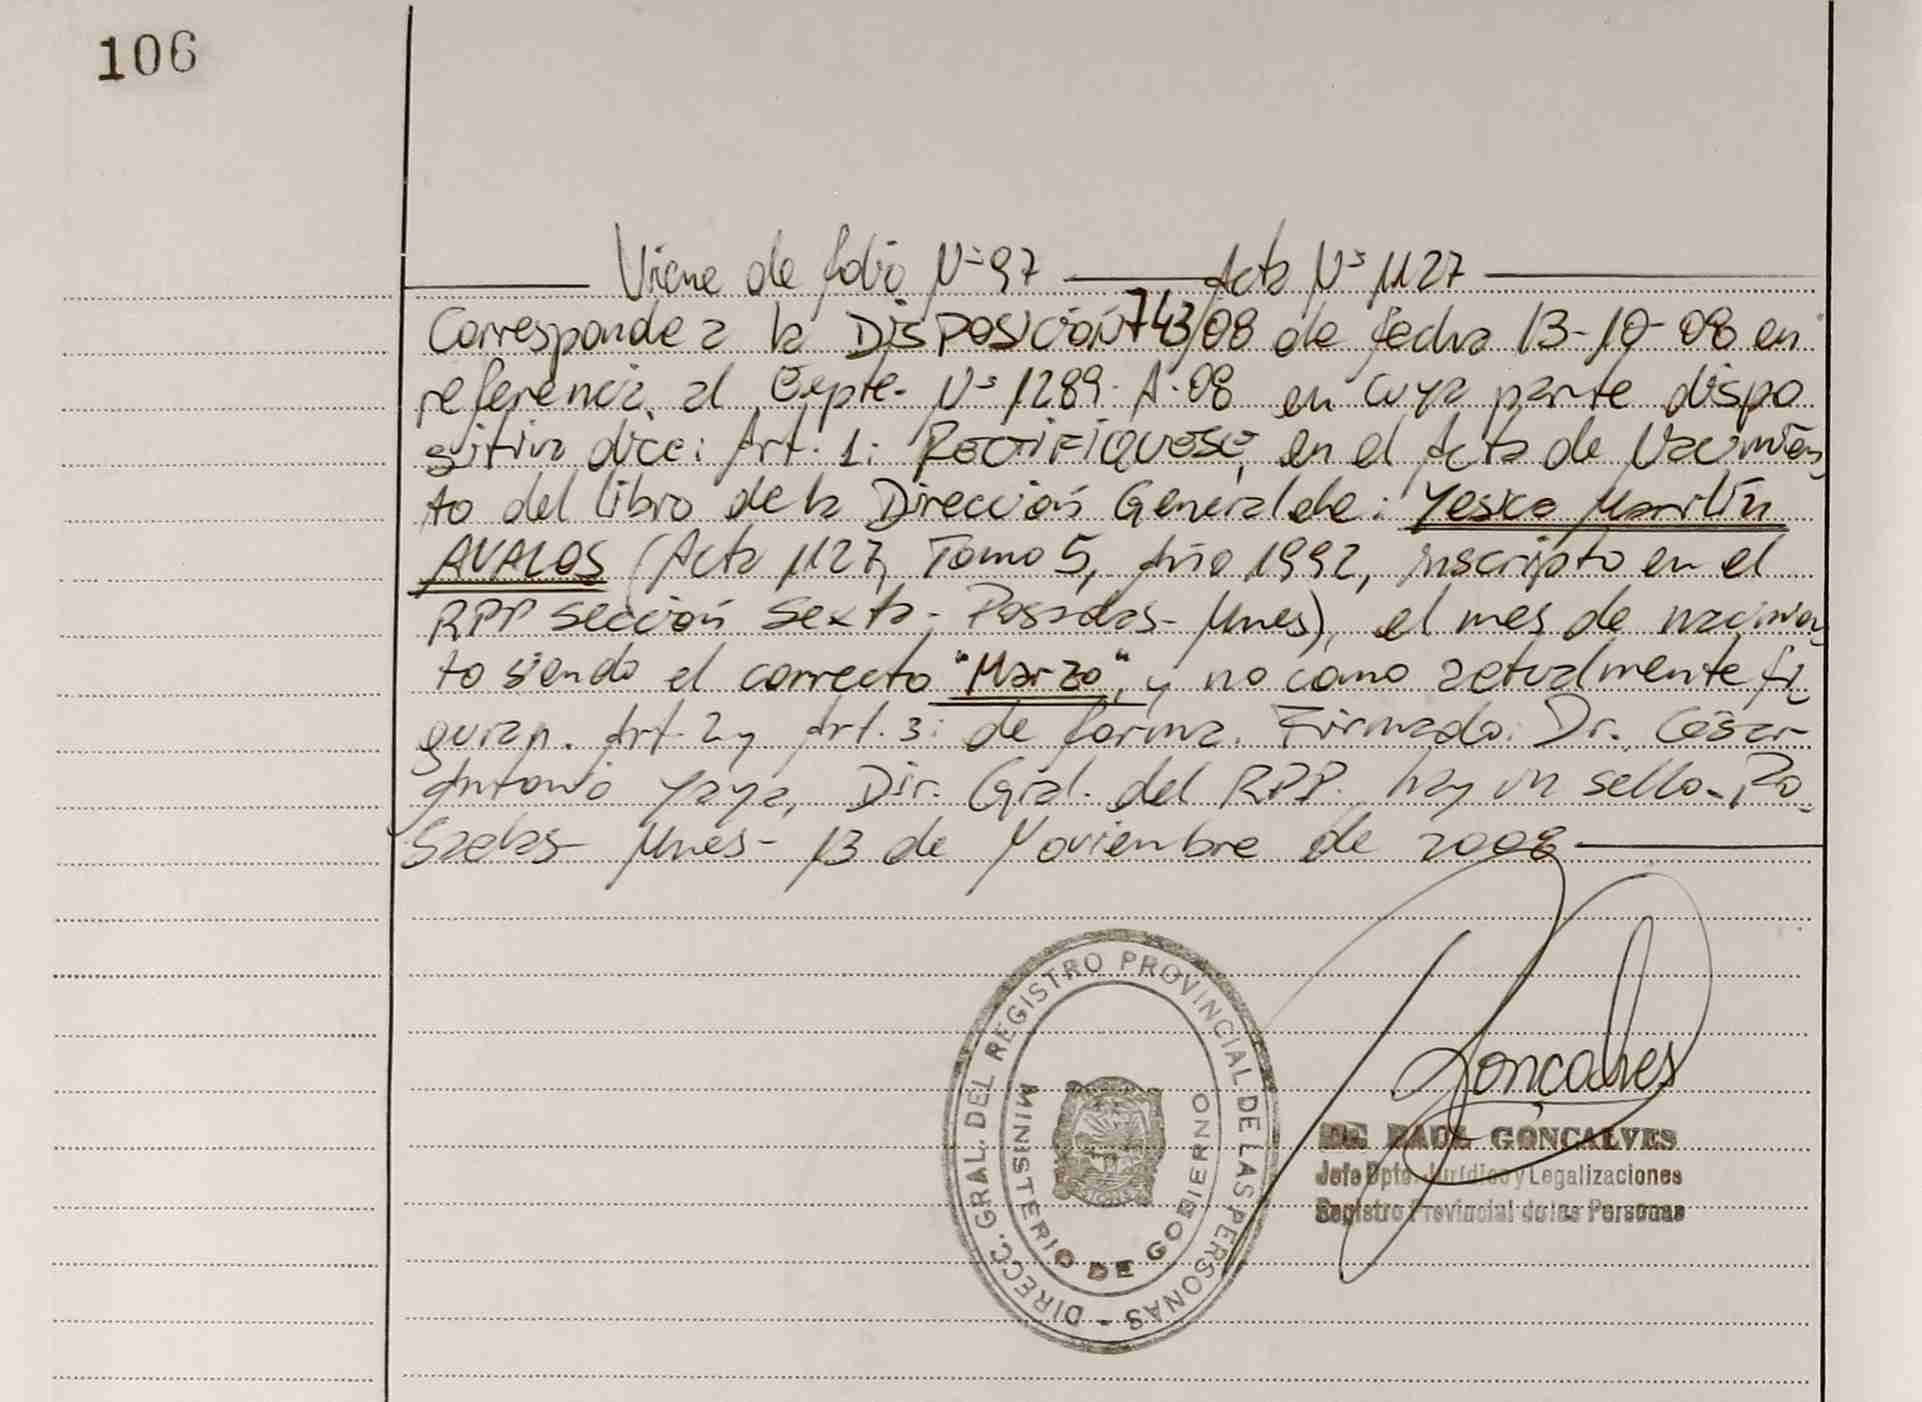 106
Viene de folio Nº 97 Acta Nº 1127
Corresponde a la DISPOSICIÓN 743/08 de fecha 13-10-08 en
referencia al Expte. Nº 1289-A-08 en cuya parte dispo
sitiva dice: Art. 1: RECTIFIQUESE, en el Acta de Nacimien
to del libro de la Dirección General de: Yesica Marilín
AVALOS (Acta 1127, Tomo 5, Año 1992, inscripto en el
RPP sección Sexta- Posadas- Mnes), el mes de nacimien
to siendo el correcto "Marzo", y no como actualmente fi
guran. Art. 2 y Art. 3: de forma. Firmado: Dr. César
Antonio Yaya, Dir. Gral. del RPP. hay un sello- Po-
sadas- Mnes- 13 de Noviembre de 2008
DIRECC. GRAL. DEL REGISTRO PROVINCIAL DE LAS PERSONAS -
MINISTERIO DE GOBIERNO
Gonçalves
RAUL GONÇALVES
Jefe Dpto. Jurídico y Legalizaciones
Registro Provincial de las Personas